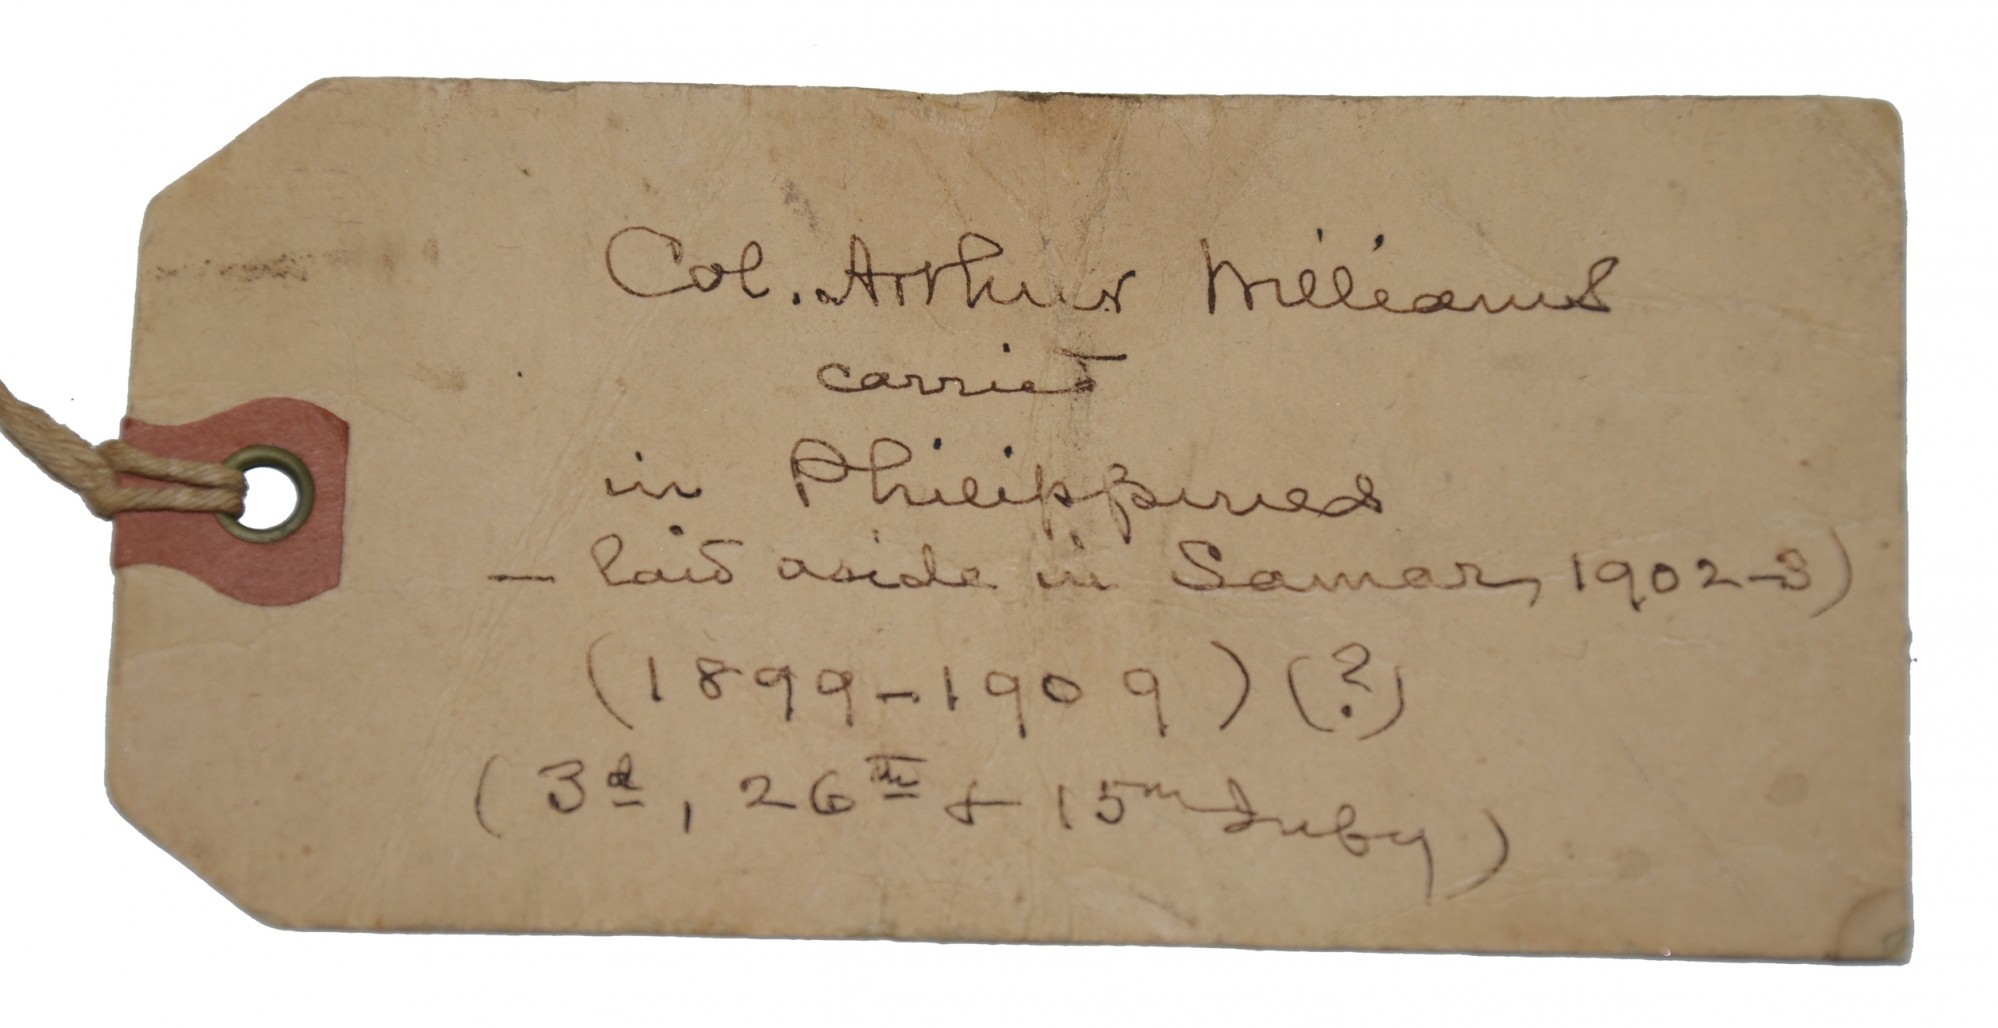 Col. Arthur Williams
carried
in Philippines
— laid aside in Samar, 1902-3)
(1899-1909) (?)
(3d, 26th & 15th Infty)